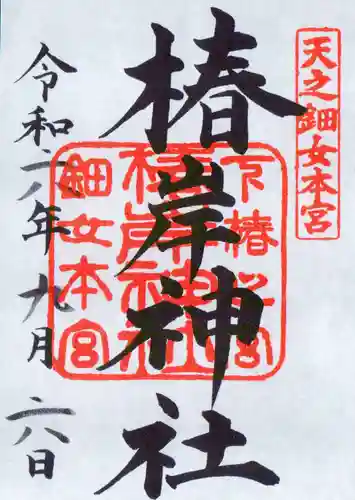 天之鈿女本宮
椿岸神社
下椿之宮
椿岸神社
鈿女本宮
令和二年九月六日